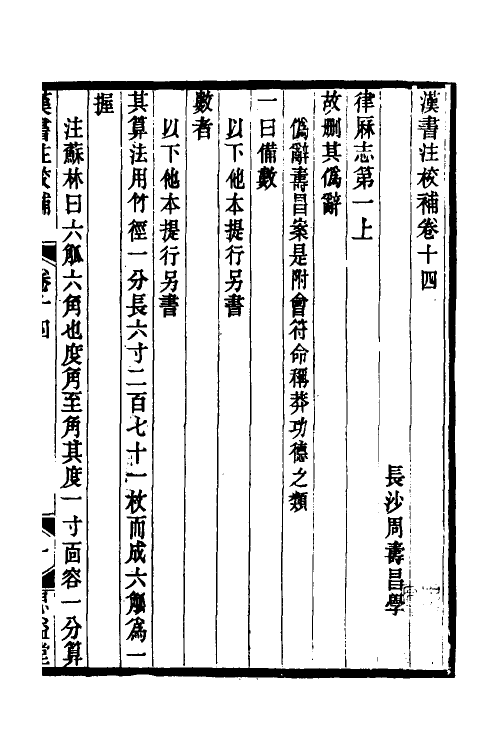 漢書注校補卷十四
長沙周壽昌學
律厤志第一上
故刪其偽辭
偽辭壽昌案是附會符命稱莽功德之類
一曰備數
以下他本提行另書
數者
以下他本提行另書
其算法用竹徑一分長六寸二百七十一枚而成六觚為一
握
注蘇林曰六觚六角也度角至角其度一寸面容一分算
漢書注校補 卷十四 一 思益堂